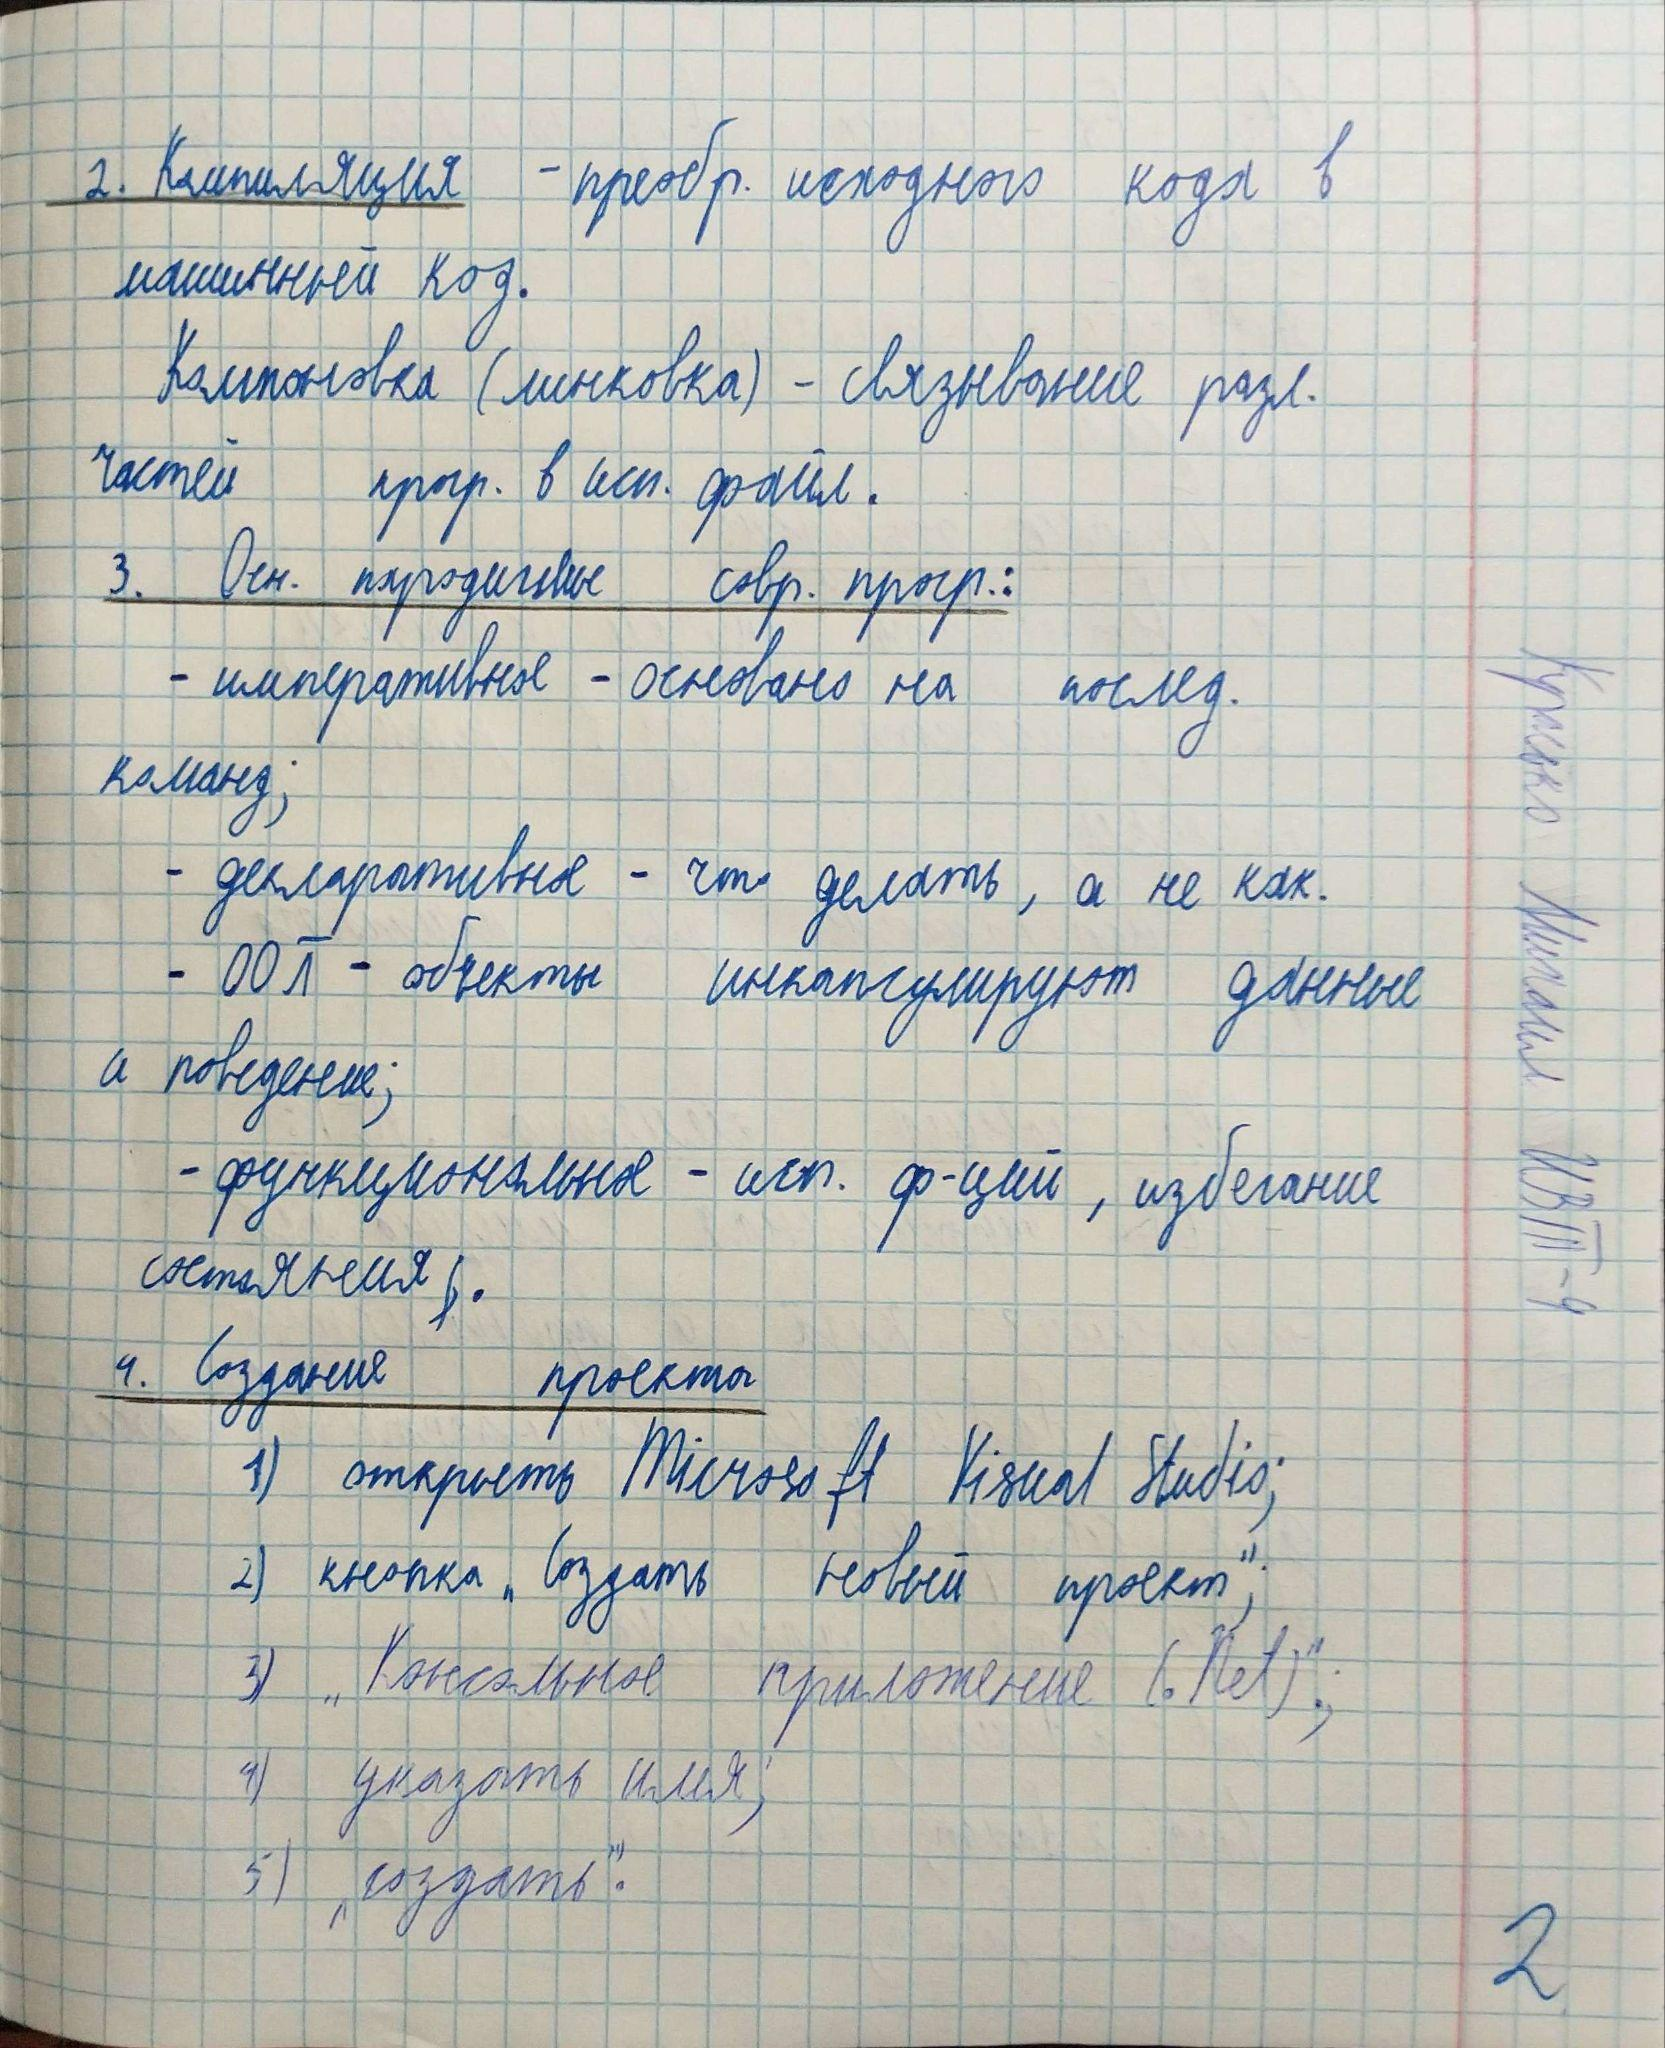 2. Компиляция - преобр. исходного кода в
машинный код.
Компоновка (линковка) - связывание разл.
частей прогр. в исп. файл.
3. Осн. парадигмы совр. прогр.:
- императивное - основано на послед.
команд;
- декларативное - что делать, а не как.
- ООП - объекты инкапсулируют данные
и поведение;
- функциональное - исп. ф-ций, избегание
состояния;.
4. Создание проекта
1) открыть Microsoft Visual Studio;
2) кнопка „Создать новый проект";
3) „Консольное приложение (.Net)";
4) указать имя;
5) „создать".
Михаил ИВТП-9
2